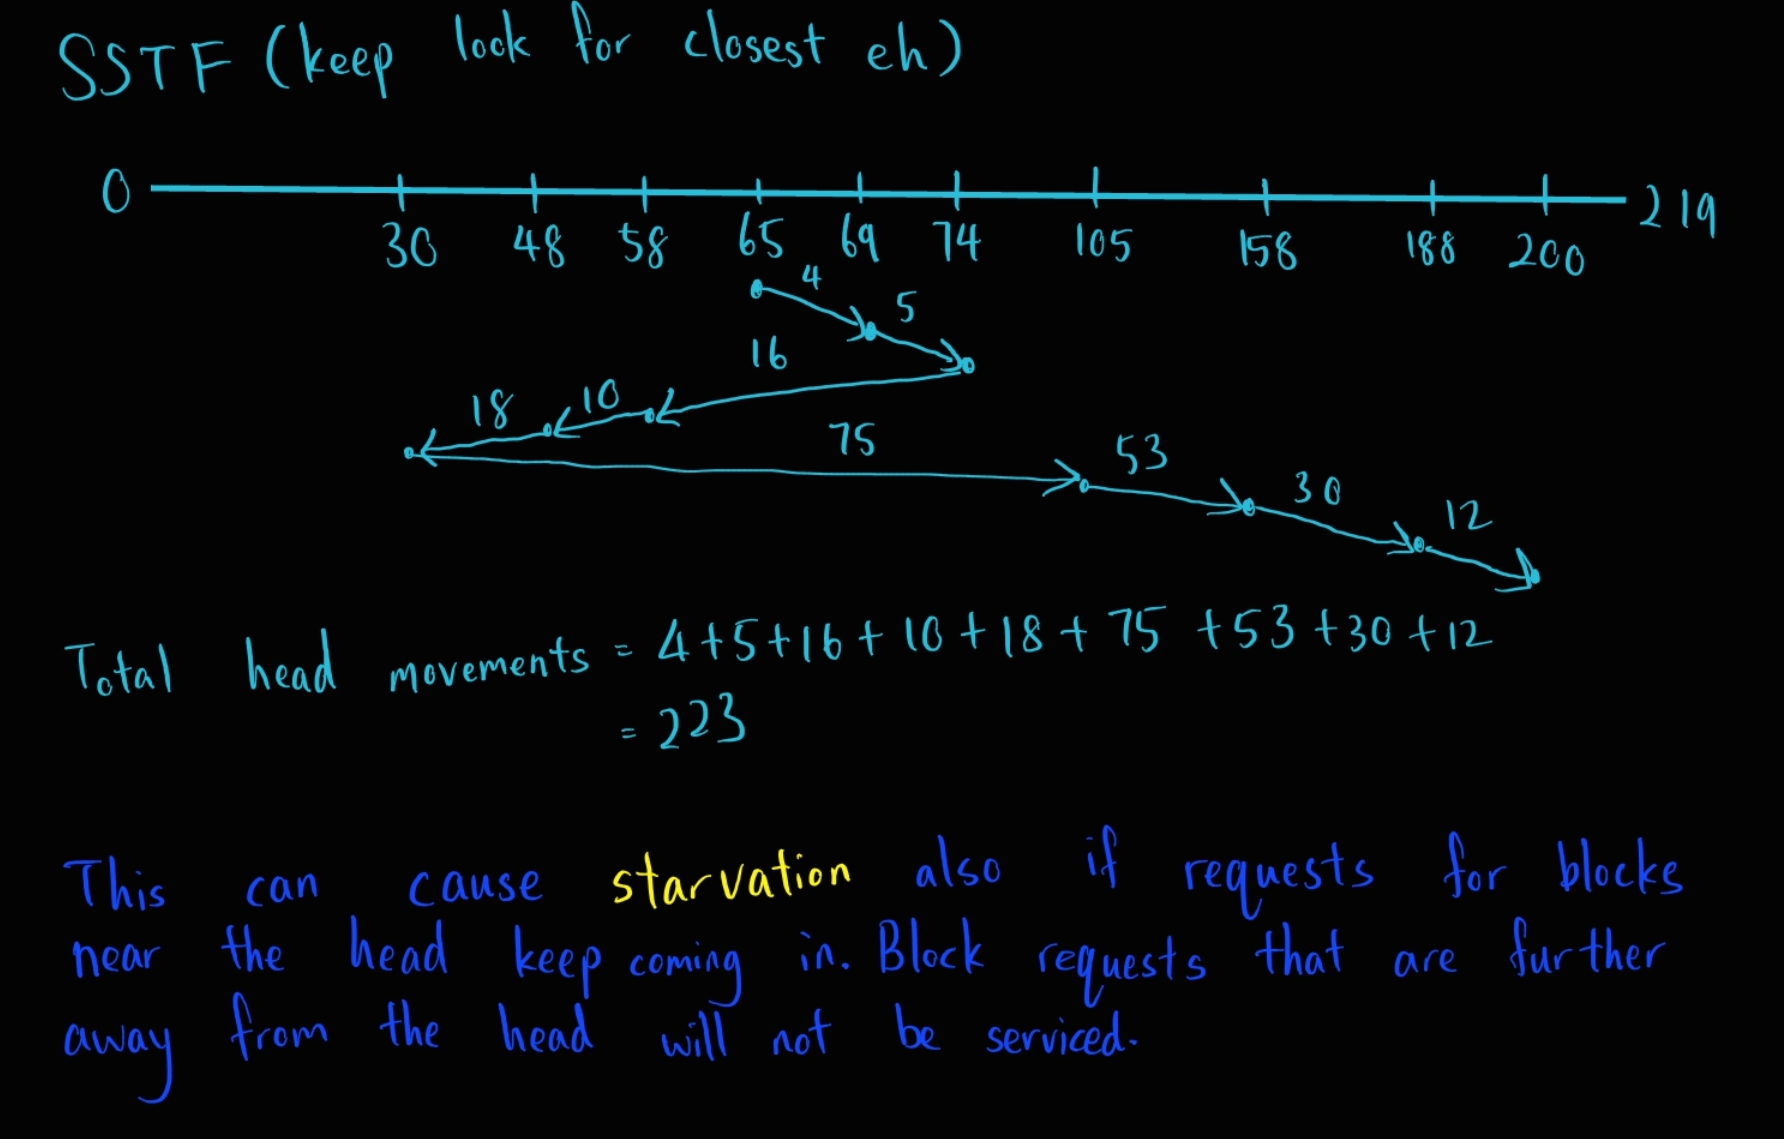 SSTF (keep look for closest eh)
0 219
30 48 58 65 69 74 105 158 188 200
4
5
16
18 10
75 53
30
12
Total head movements = 4+5+16+10+18+75+53+30+12
= 223
This can cause starvation also if requests for blocks
near the head keep coming in. Block requests that are further
away from the head will not be serviced.